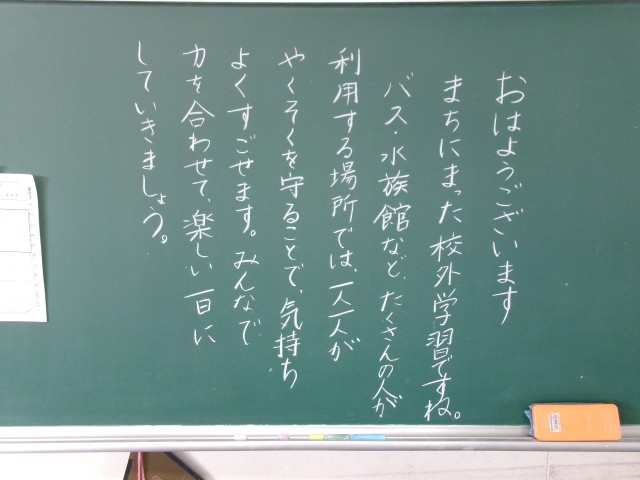 おはようございます
まちにまった校外学習ですね。
バス・水族館など、たくさんの人が
利用する場所では、一人一人が
やくそくを守ることで、気持ち
よくすごせます。みんなで
力を合わせて、楽しい一日に
していきましょう。